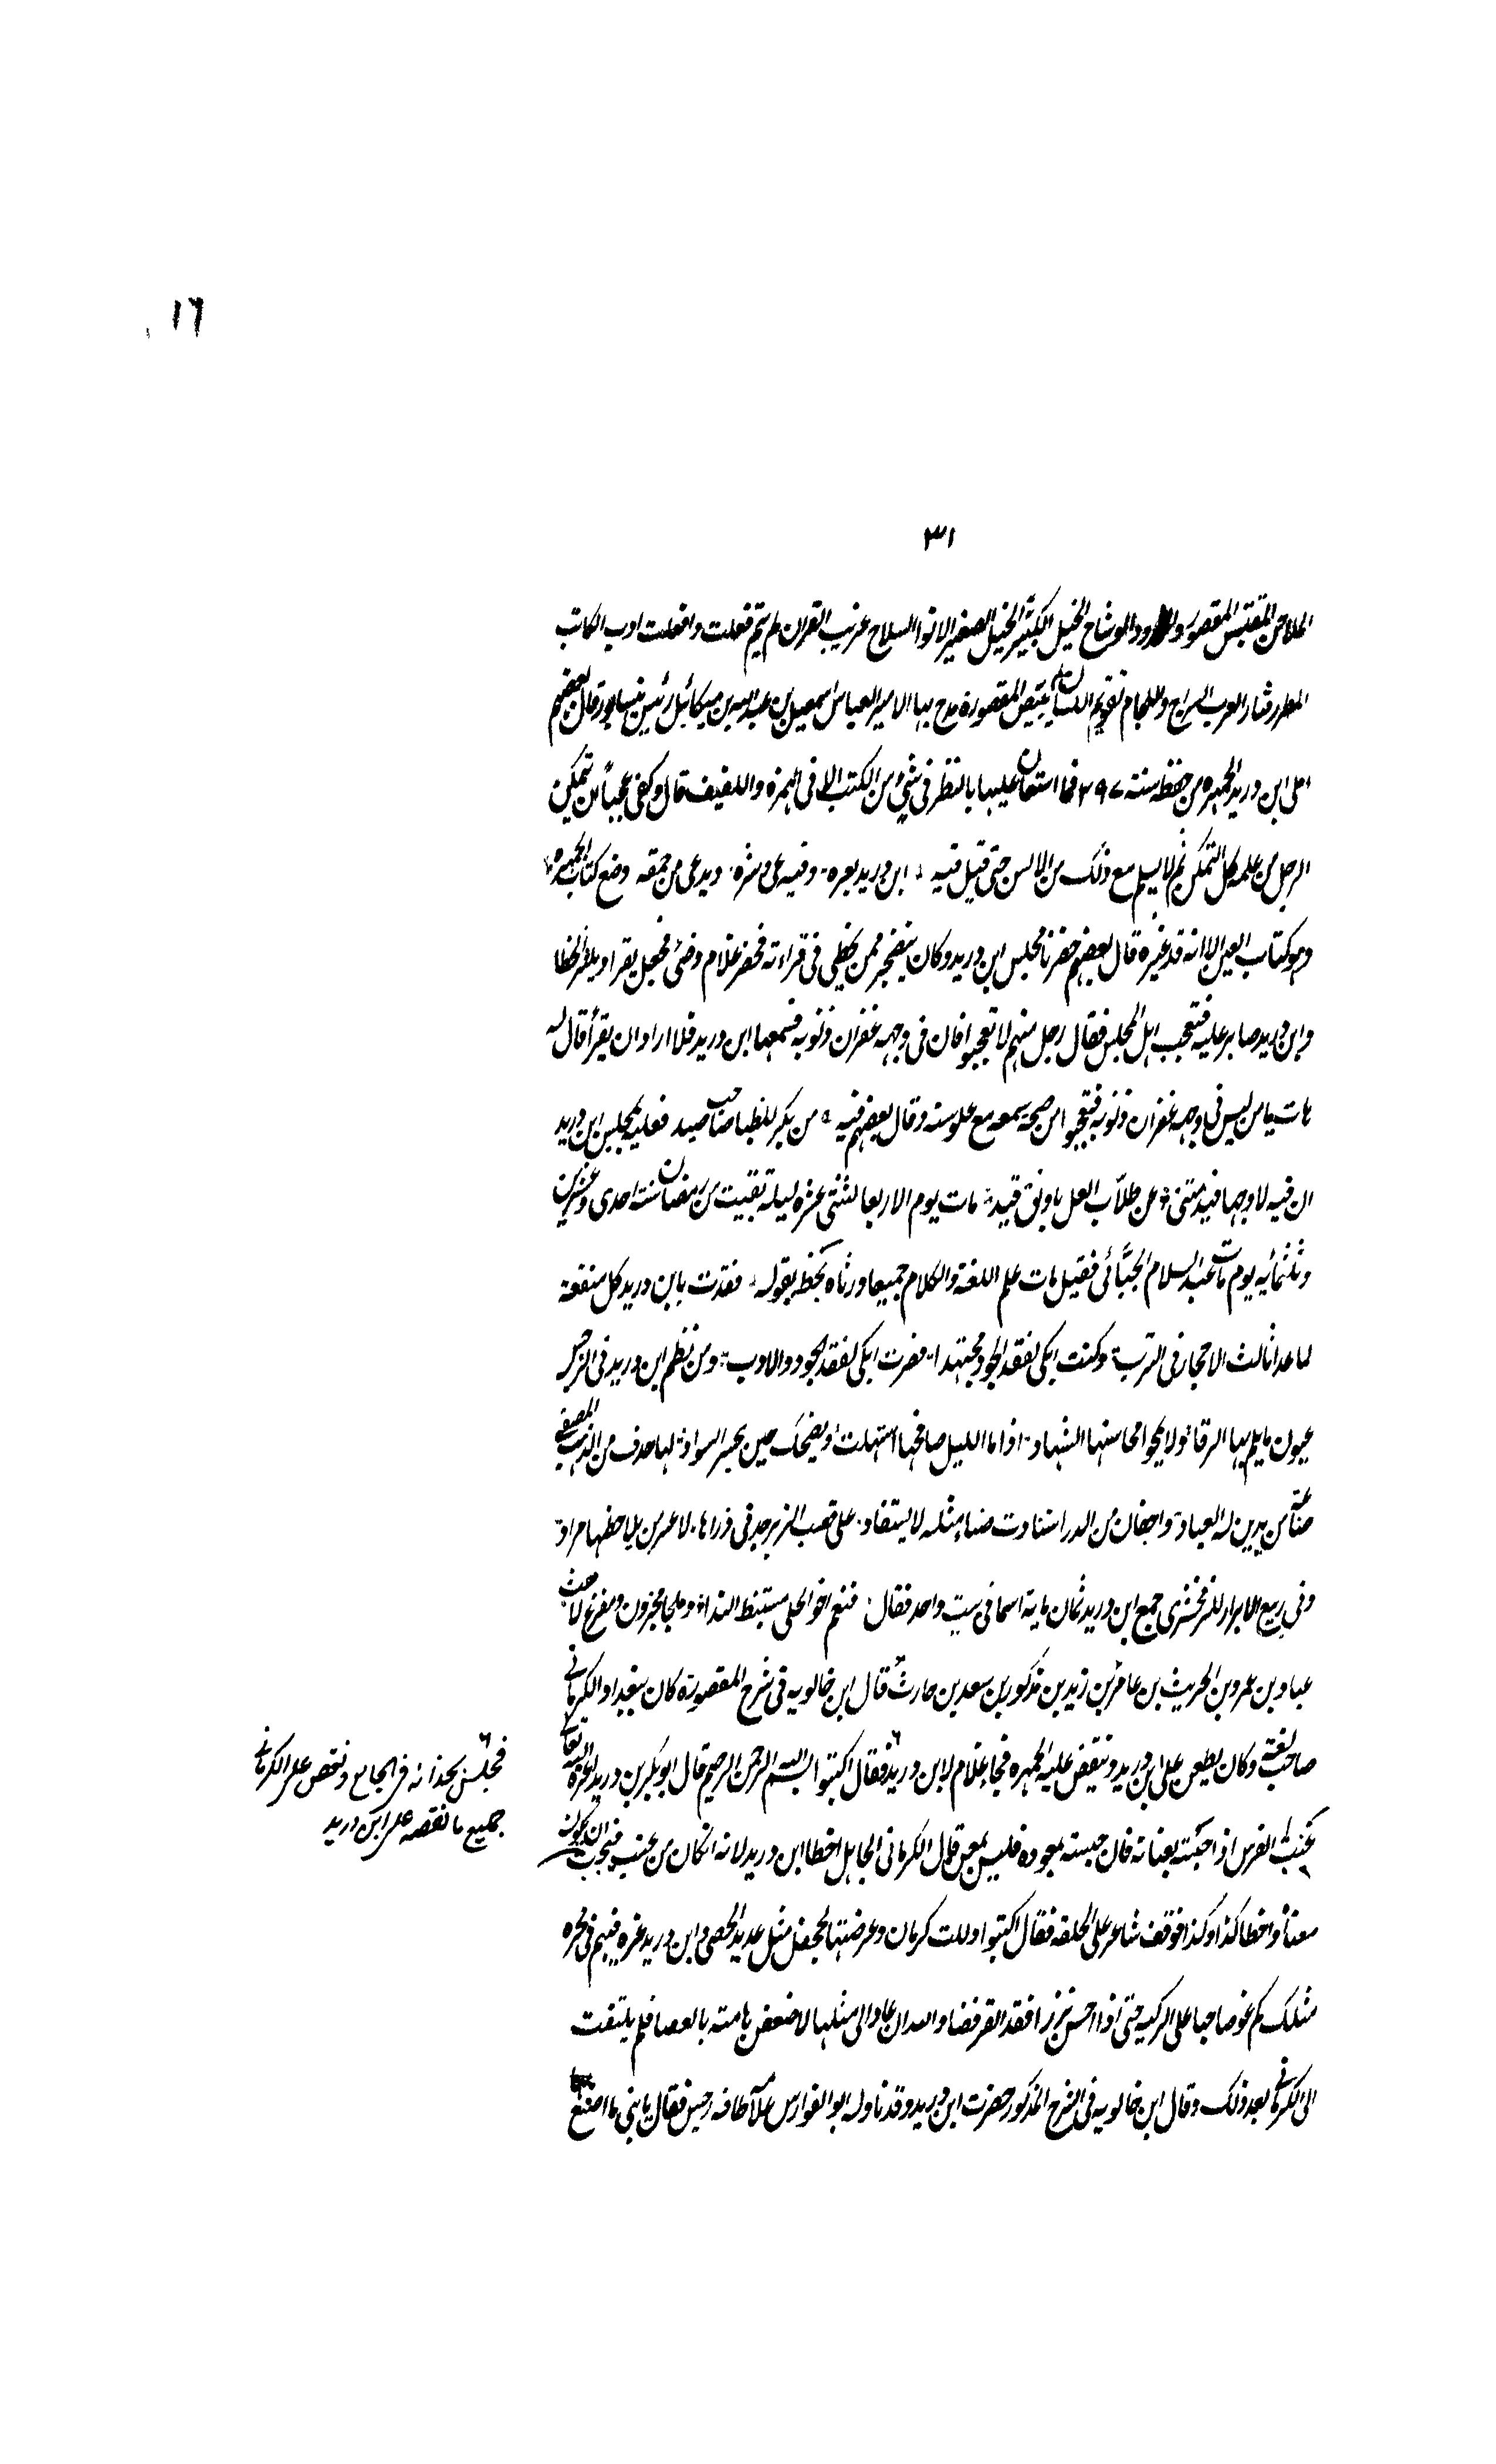 ١٦
٣١
الملاحن المقتبس المقصور والممدود الوشاح الخيل الكبير الخيل الصغير الانوا السلاح غريب القران لم يتم فعلت وافعلت ادب الكاتب
المطر زوار العرب السرج واللجام تقويم اللسان لم يبيض المقصورة مدح بها الامير العباس اسمعيل بن عبد الله بن ميكائيل رئيس نيسابور قال بعضهم
املى ابن دريد الجمهره من حفظه سنة ٢٩٧ فما استعان عليها بالنظر فى شيء من الكتب الا فى الهمزه واللفيف قال وكفى عجباً ان يتمكن
الرجل من علمه كل التمكن ثم لا يسلم مع ذلك من الالسن حتى قيل فيه ابن دريد بقره وفيه عى وشره ويدعى من حمقه وضع كتاب الجمهره
وهو كتاب العين الا انه قد غيره قال بعضهم حضرنا مجلس ابن دريد وكان يتضجر ممن يخطى فى قراءته فحضر غلام وضئ فجعل يقرا ويكثر الخطا
وابن دريد صابر عليه فتعجب اهل المجلس فقال رجل منهم لا تعجبوا فان فى وجهه غفران ذنوبه فسمعها ابن دريد فلما اراد ان يقرأ قال له
هات يا من ليس فى وجهه غفران ذنوبه فتعجبوا من صحة سمعه مع علو سنه وقال بعضهم فيه من يكن للظبا صاحب صيد فعليه بمجلس ابن دريد
ان فيه لاوجها قيدتنى عن طلاب العلى باوثق قيد مات يوم الاربعا لثنتى عشره ليلة بقيت من رمضان سنة احدى وعشرين
وثلثمائه يوم مات عبد السلام الجبّائى فقيل مات علم اللغة والكلام جميعا ورثاه جحظه بقوله فقدت بابن دريد كل منفعة
لما غدا ثالث الاحجار فى الترب وكنت ابكى لفقد الجود مجتهدا فصرت ابكى لفقد الجود والادب ومن نظم ابن دريد فى النرجس
عيون ما يلم بها الرقاد ولا يمحوا محاسنها السهاد اذا ما الليل صافحها استهلت وتضحك حين ينحسر السواد لها حدق من الذهب المصفى
صناعة من يدين له العباد واجفان من الدر استفادت ضياء مثله لا يستفاد على قضب الزبرجد فى ذراها لاعين من يلاحظها مراد
وفى ربيع الابرار للزمخشرى جمع ابن دريد ثمان ماية اسما فى بيت واحد فقال فنعم اخو الجلى مستنبط الندا وملجا محزون ومفزع لاهث
عباد بن عمرو بن الحريث بن عامر بن زيد بن مذكور بن سعد بن حارث قال ابن خالويه فى شرح المقصورة كان ببغداد الكرمانى
صاحب لغة وكان يطعن على ابن دريد وينقض عليه الجمهره فجاء غلام لابن دريد فقال اكتبوا بسم الله الرحمن الرحيم قال ابو بكر بن دريد اعزه الله تعالى
فجلس بحذائه فى الجامع ونقض على الكرمانى
جميع ما نقضه على ابن دريد
عنت الفرس اذا حبسته بعنانه فان حبسته بمقوده فليس بمعن قال الكرمانى الجاهل اخطا ابن دريد لانه ان كان من فيجب ان يكون
معناه واخطا كذا وكذا فوقف شاعر على الحلقه فقال اكتبوا كرمان وعرضتها لجحفل مثل عديد الحصى وابن دريد غره فيهم فى بحره
مثلك كم غوصا حتى اذا فقد القرفضا والله ان عاد الى مثلها لاصفعن هامته بالعصا فلم يلتفت
الى الكرمانى بعد ذلك وقال ابن خالويه فى الشرح المذكور حضرت ابن دريد وقد ناوله ابو الفوارس غلامه طاقة نرجس فقال يا بنى ما اصنع